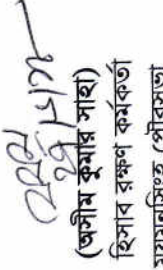 (অসীম কুমার সাহা)
হিসাব রক্ষণ কর্মকর্তা
ময়মনসিংহ পৌরসভা